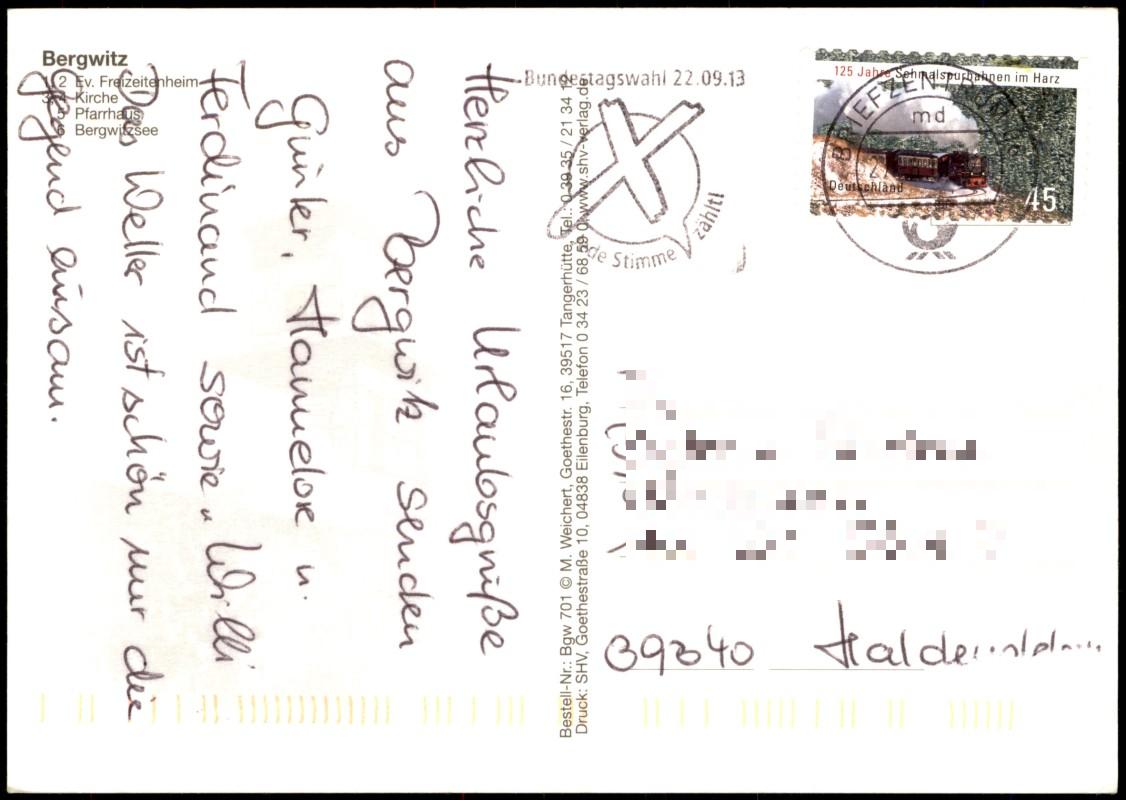 Bergwitz
1, 2 Ev. Freizeitenheim
3, 4 Kirche
5 Pfarrhaus
6 Bergwitzsee
Herzliche Urlaubsgrüße
aus Bergwitz senden
Günter, Hannelore u.
Ferdinand sowie "Willi
Das Wetter ist schön nur die
Gegend einsam.
Bestell-Nr.: Bgw 701 © M. Weichert, Goethestr. 16, 39517 Tangerhütte, Tel.: 0 39 35 / 21 34 12
Druck: SHV, Goethestraße 10, 04838 Eilenburg, Telefon 0 34 23 / 68 59 0, www.shv-verlag.de
Bundestagswahl 22.09.13
de Stimme zählt!
125 Jahre Schmalspurbahnen im Harz
Deutschland
45
BRIEFZENTRUM
md
39340 Haldensleben